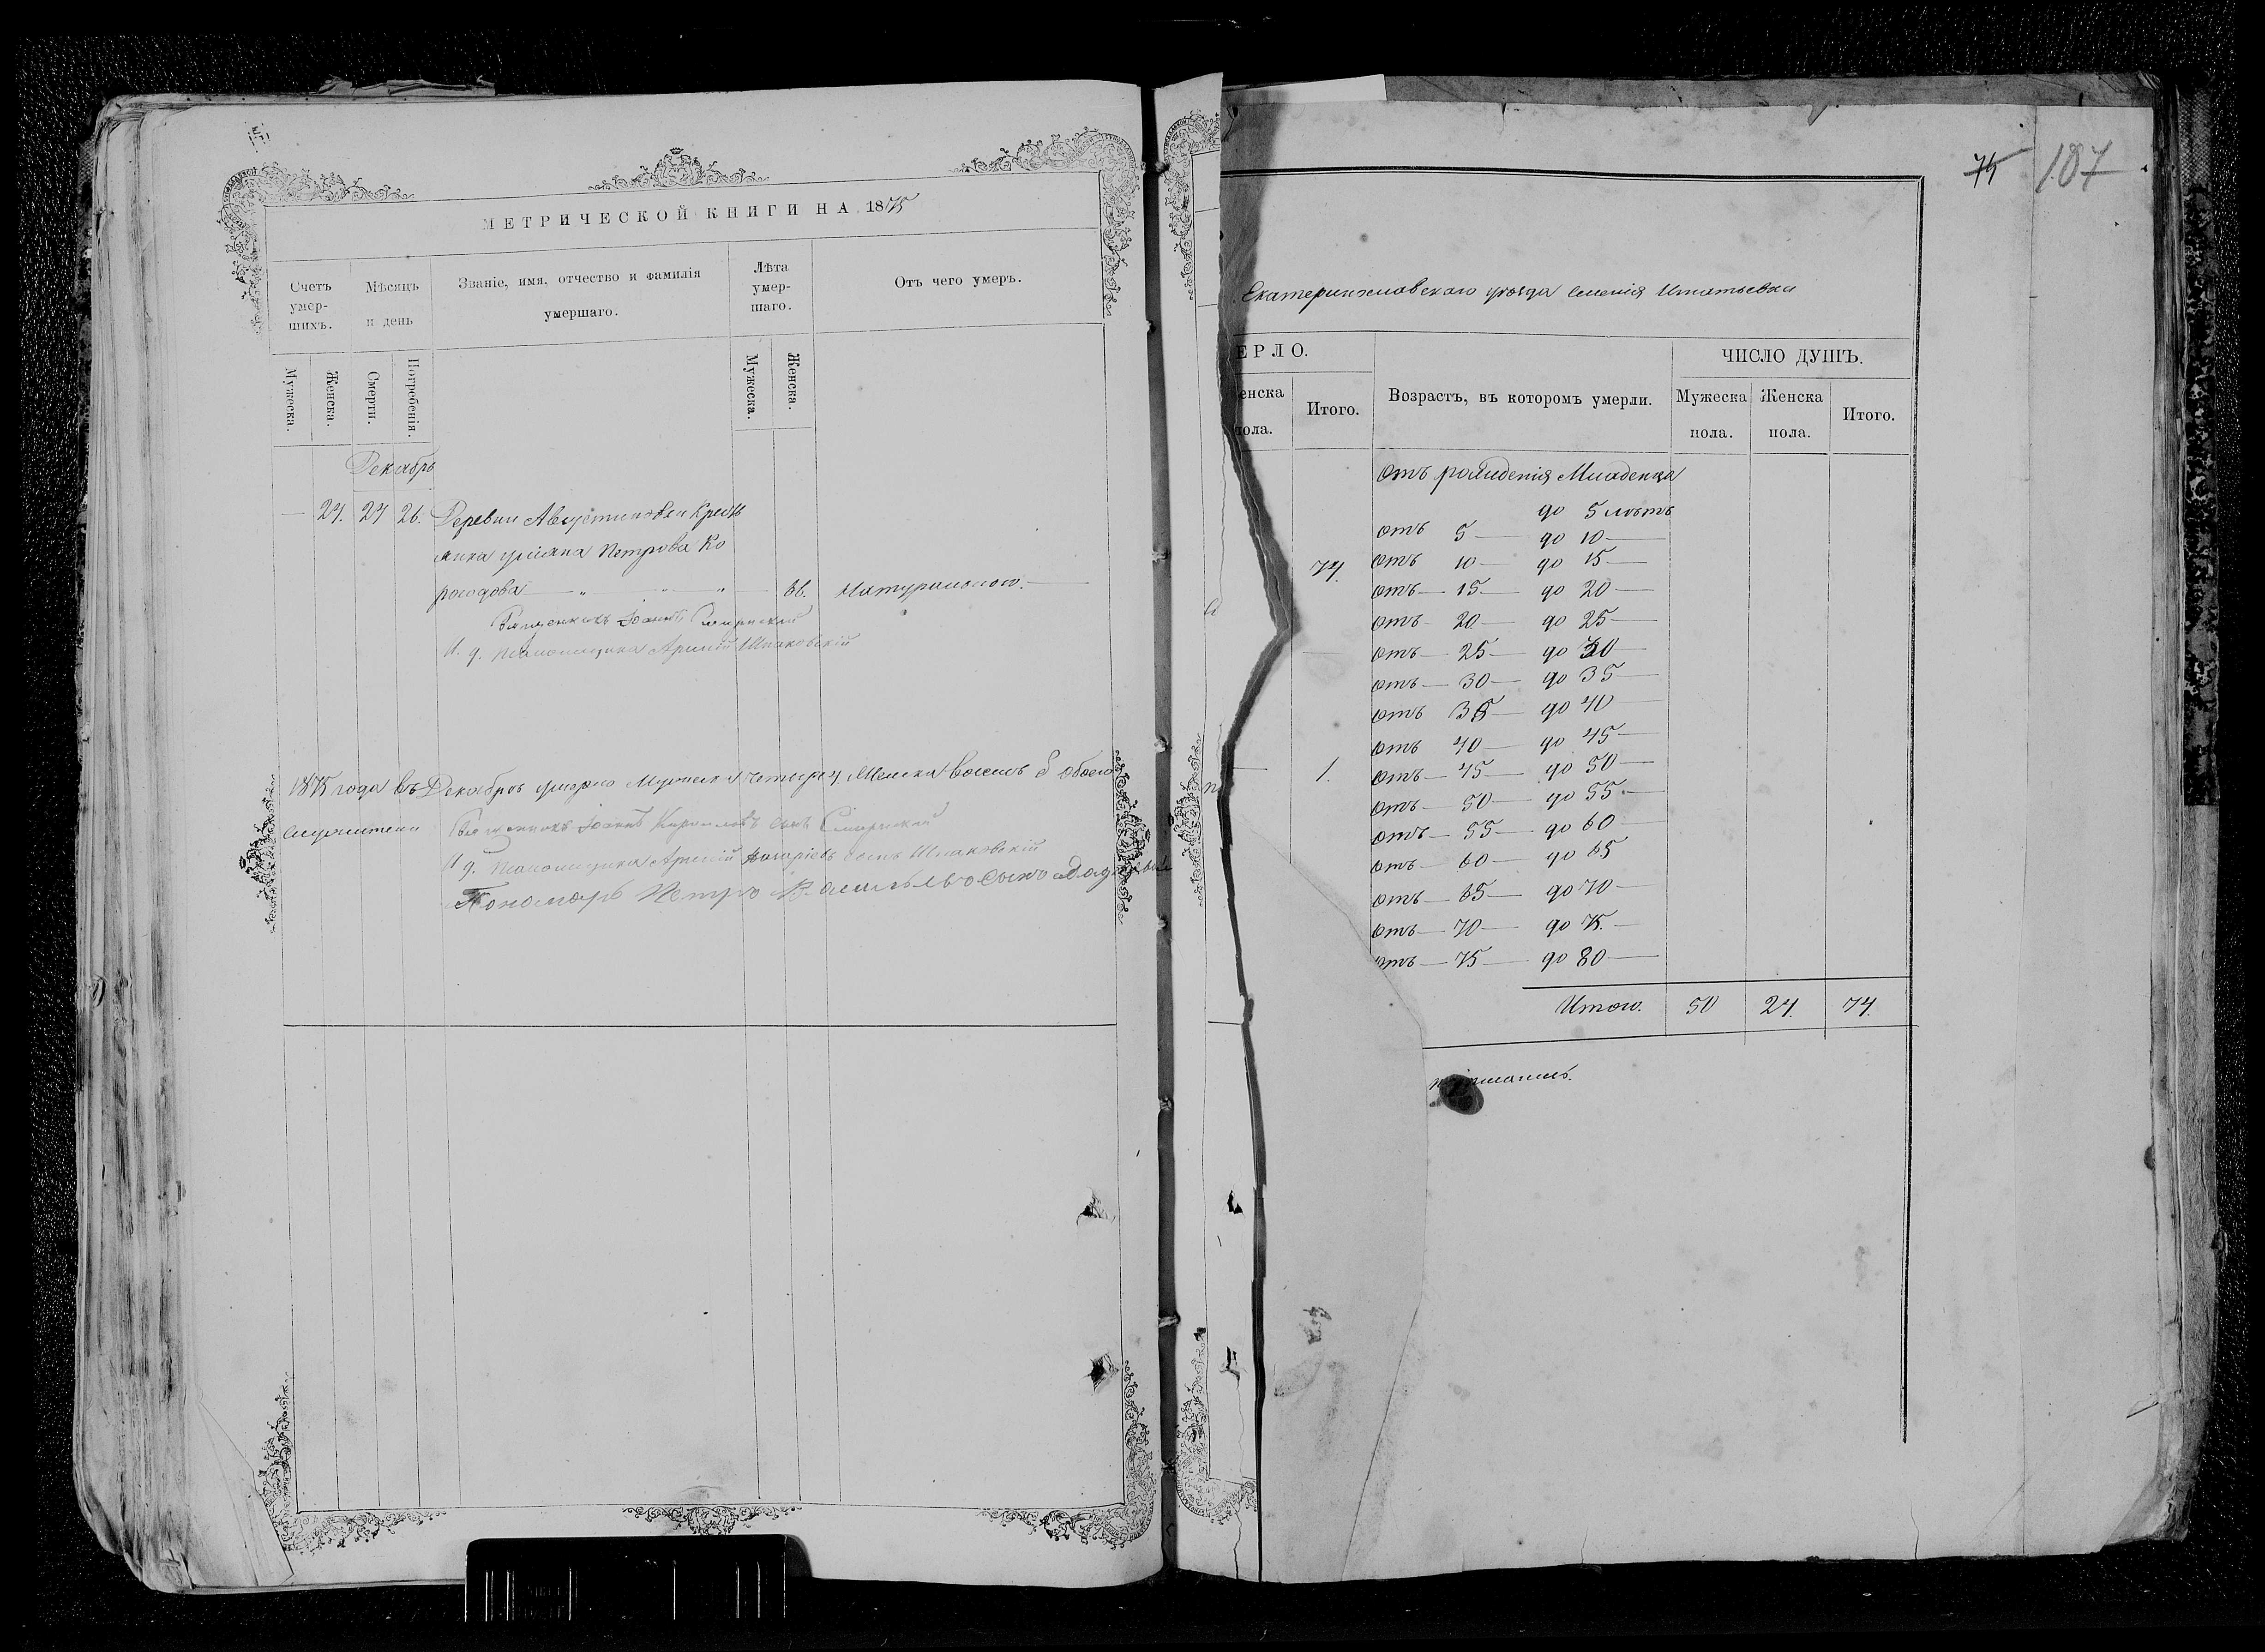 МЕТРИЧЕСКОЙ КНИГИ НА 1875
Счетъ умер-шихъ.
Мѣсяцъ и день
Званіе, имя, отчество и фамилія умершаго.
Лѣта умер-шаго.
Отъ чего умеръ.
Мужеска.
Женска.
Смерти.
Погребенія.
Мужеска.
Женска.
Декабрь
— 24. 24 26. Деревни Августиновки Кресть
Петрова Ко
рогодова — 66. Натуральною. —
Священникъ Іоаннъ
И. д. Псаломщика Шпаковскій
1875 года въ Декабрѣ умерло Мужеска четыре 4 Женска восемь 8 обоего
Священникъ Іоаннъ сынъ
И. д. Псаломщика сынъ Шпаковскій
Пономарь Петръ Васильевъ сынъ
75 107
Екатеринославского уѣзда селенія Игнатьевки
ЕРЛО.
Возрастъ, въ которомъ умерли.
ЧИСЛО ДУШЪ.
енска пола.
Итого.
Мужеска пола.
Женска пола.
Итого.
Отъ рожденія Младенца
до 5 лѣтъ
отъ 5 — до 10 —
74. отъ 10 — до 15 —
отъ — 15. — до 20 —
отъ — 20 — до 25 —
отъ — 25 — до 30 —
отъ — 30 — до 35 —
отъ 35 — до 40 —
отъ 40 — до 45 —
— 1. отъ — 45 — до 50 —
отъ — 50 — до 55. —
отъ — 55 — до 60 —
отъ — 60 — до 65
отъ — 65 — до 70 —
отъ — 70 — до 75. —
отъ — 75 — до 80 —
Итого. 50 24. 74.